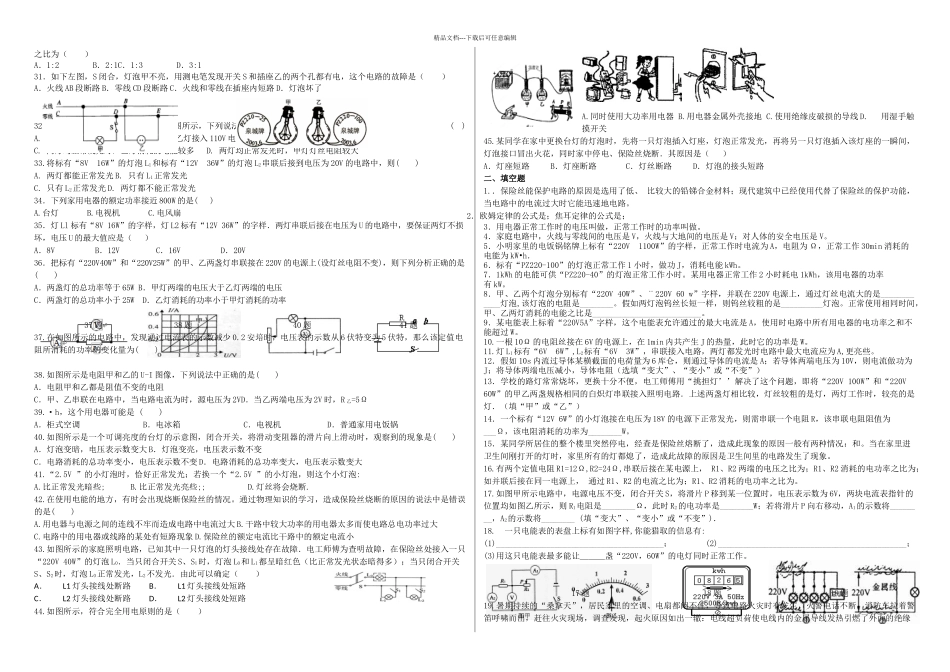 精品文档---下载后可任意编辑
之比为（ ）
A. 1:2 B. 2:1C. 1:3 D. 3:1
31. 如下左图，S闭合，灯泡甲不亮，用测电笔发现开关S和插座乙的两个孔都有电，这个电路的故障是（ ）
A. 火线AB段断路B. 零线CD段断路C. 火线和零线在插座内短路D. 灯泡坏了
火线 A B
零线 C D E
S
甲 乙
32 图所示，下列说 （ ）
PZ220-25 泉城牌 2001.6
PZ110-25 泉城牌 2001.6
甲 乙
A. 乙灯接入110V电
C. 较多 D. 两灯均正常发光时，甲灯灯丝电阻较大
33.将标有“8V 16W”的灯泡L₁和标有“12V 36W”的灯泡L₂串联后接到电压为20V的电路中，则( )
A. 两灯都能正常发光B. 只有L₁正常发光
C. 只有L₂正常发光D. 两灯都不能正常发光
34. 下列家用电器的额定功率接近800W的是( )
A.台灯 B.电视机 C.电风扇
35. 灯L1标有“8V 16W”的字样，灯L2标有“12V 36W”的字样. 两灯串联后接在电压为U的电路中，要保证两灯不损
坏，电压U的最大值应是（ ）
A. 8V B.12V C. 16V D. 20V
36.把标有“220V40W”和“220V25W”的甲、乙两盏灯串联接在220V的电源上(设灯丝电阻不变)，则下列分析正确的是
( )
A. 两盏灯的总功率等于65W B. 甲灯两端的电压大于乙灯两端的电压
C. 两盏灯的总功率小于25W D. 乙灯消耗的功率小于甲灯消耗的功率
I/A
0.6
0.4
0.2
0 1 2 U/V
37.在如图所示的电路中，发现通过电流表的示数减少0.2安培时，电压表的示数从6伏特变为5伏特，那么该定值电
阻所消耗的功率的变化量为( )
38.如图所示是电阻甲和乙的U-I图像，下列说法中正确的是( )
A. 电阻甲和乙都是阻值不变的电阻
C. 甲、乙串联在电路中，当电路电流为时，源电压为2VD. 当乙两端电压为2V时，R乙=5Ω
39.•h，这个用电器可能是（ ）
A. 柜式空调 B. 电冰箱 C. 电视机 D. 普通家用电饭锅
40.如图所示是一个可调亮度的台灯的示意图，闭合开关，将滑动变阻器的滑片向上滑动时，观察到的现象是( )
A. 灯泡变暗，电压表示数变大B. 灯泡变亮，电压表示数不变
C. 电路消耗的总功率变小，电压表示数不变D. 电路消耗的总功率变大，电压表示数变大
41.“2.5V ”的小灯泡时，恰好正常发光；若换一个“2.5V ”的小灯泡，则这个小灯泡：
A.比正常发光暗些; B.比正常发光亮些;; D.灯丝将会烧断.
42.在使用电能的地方，有时会出现烧断保险丝的情况。通过物理知识的学习，造成保险丝烧断的原因的说法中是错误
的是( )
A.用电器与电源之间的连线不牢而造成电路中电流过大B.干路中较大功率的用电器太多而使电路总电功率过大
C.电路中的用电器或线路的某处有短路现象D.保险丝的额定电流比干路中的额定电流小
43.如图所示的家庭照明电路，已知其中一只灯泡的灯头接线处存在故障. 电工师傅为查明故障，在保险丝处接入一只
“220V 40W”的灯泡L₀. 当只闭合开关S、S₁时，灯泡L₀和L₁都呈暗红色（比正常发光状态暗得多）；当只闭合开关
S、S₂时，灯泡L₀正常发光，L₂不发光. 由此可以确定（ ）
火线
零线
A. L1灯头接线处断路 B. L1灯头接线处短路
C. L2灯头接线处断路 D. L2灯头接线处短路
44.如图所示，符合完全用电原则的是（ ）
A.同时使用大功率用电器 B.用电器金属外壳接地 C.使用绝缘皮破损的导线D. 用湿手触
摸开关
45.某同学在家中更换台灯的灯泡时，先将一只灯泡插入灯座，灯泡正常发光，再将另一只灯泡插入该灯座的一瞬间，
灯泡接口冒出火花，同时家中停电、保险丝烧断．其原因是（ ）
A．灯座短路 B．灯座断路 C．灯丝断路 D．灯泡的接头短路
二、填空题
1．．保险丝能保护电路的原因是选用了低、 比较大的铅锑合金材料；现代建筑中已经使用代替了保险丝的保护功能，
当电路中的电流过大时它能迅速地电路。
2．欧姆定律的公式是；焦耳定律的公式是；
3. 用电器正常工作时的电压叫做，正常工作时的功率叫做。
4. 家庭电路中，火线与零线间的电压是V，火线与大地间的电压是V；对人体的安全电压是V。
5. 小明家里的电饭锅铭牌上标有“220V 1100W”的字样，正常工作时电流为A，电阻为Ω，正常工作30min消耗的
电能为kW•h。
6. 标有“PZ220-100”的灯泡正常工作1小时，做功J，消耗电能kWh。
7. 1kWh的电能可供“PZ220-40”的灯泡正常工作小时。某用电器正常工作2小时耗电1kWh，该用电器的功率
有kW。
8. 甲、乙两个灯泡分别标有“220V 40W”、“220V 60 w”字样，并联在220V电源上，通过灯丝电流大的是
灯泡，该灯泡的电阻是 。假如两灯泡钨丝长短一样，则钨丝较粗的是 灯泡。正常使用相同时间，
甲、乙两灯消耗的电能之比是 。
9. 某电能表上标着“220V5A”字样，这个电能表允许通过的最大电流是A，使用时电路中所有用电器的电功率之和不
能超过W。
10.一根10Ω的电阻丝接在6V的电源上，在1min内共产生J的热量，此时它的电功率是W。
11. 灯L₁标有“6V 6W”,L₂标有“6V 3W”，串联接入电路，两灯都发光时电路中最大电流应为A,更亮些。
12. 假如10s内流过导体某横截面的电荷量为6库仑，则通过导体的电流是A；若导体两端电压为10V，则电流做功为
J；将导体两端电压减小，导体电阻（选填“变大”、“变小”或“不变”）
13. 学校的路灯常常烧坏，更换十分不便，电工师傅用“挑担灯’’解决了这个问题，即将“220V 100W”和“220V
60W”的甲乙两盏规格相同的白炽灯串联接入照明电路. 上述两盏灯相比较，灯丝较粗的是灯，两灯工作时，较亮的是
灯.（填“甲”或“乙”）
14. 一个标有“12V 6W”的小灯泡接在电压为18V的电源下正常发光，则需串联一个电阻R，该串联电阻阻值为
Ω，该电阻消耗的功率为 W。
15. 某同学所居住的整个楼里突然停电，经查是保险丝烧断了，造成此现象的原因一般有两种情况：和。当在家里进
卫生间刚打开的灯时，家里所有的灯都熄了，造成此故障的原因是卫生间里的电路发生了现象。
16.有两个定值电阻R1=12Ω,R2=24Ω,串联后接在某电源上， R1、R2两端的电压之比为；R1、R2消耗的电功率之比为；
如并联后接在同一电源上， 通过R1、R2的电流之比为；R1、R2消耗的电功率之比为。
17.如图甲所示电路中，电源电压不变，闭合开关S，将滑片P移到某一位置时，电压表示数为6V，两块电流表指针的
位置均如图乙所示，则R₁电阻是 Ω，此时R₂的电功率是 W；若将滑片P向右移动，A₁的示数将
；A₂的示数将 (填“变大”、“变小”或“不变”).
18. 一只电能表的表盘上标有如图字样,你能猜取的信息有:
(1) ; (2) ;
(3)用这只电能表最多能让 盏“220V，60W”的电灯同时正常工作。
kwh
0 8 2 6 5
220V 5A 50Hz
220V
金属线
19. 暑期持续的“桑拿天”，居民家里的空调、电扇都
笛呼啸而出，赶往火灾现场，调查发现，起火原因如出一辙：电线超负荷使电线内的金属导线发热引燃了外面的绝缘